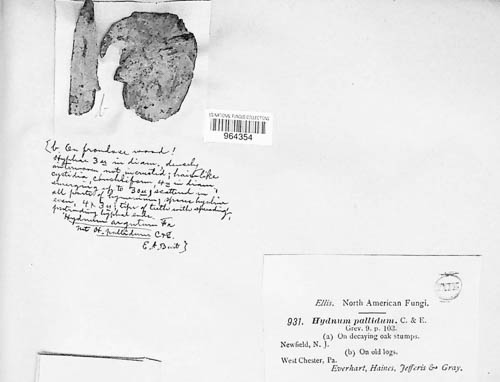 US NATIONAL FUNGUS COLLECTIONS
964354
{b. On frondose wood!
Hyphae 3 µ in diam, densely
not incrusted; hair-like
cystidia, 4 µ in diam,
emerging up to 30 µ, scattered in
all parts of hymenium; spores hyaline
even, 4 x 3 µ; tips of teeth with spreading,
protruding hyphal ends.
Hydnum argutum Fr
not H. pallidum C & E.
E. A. Burt}
Ellis. North American Fungi.
931. Hydnum pallidum. C. & E.
Grev. 9. p. 103.
(a) On decaying oak stumps.
Newfield, N. J.
(b) On old logs.
West Chester, Pa.
Everhart, Haines, Jefferis & Gray.